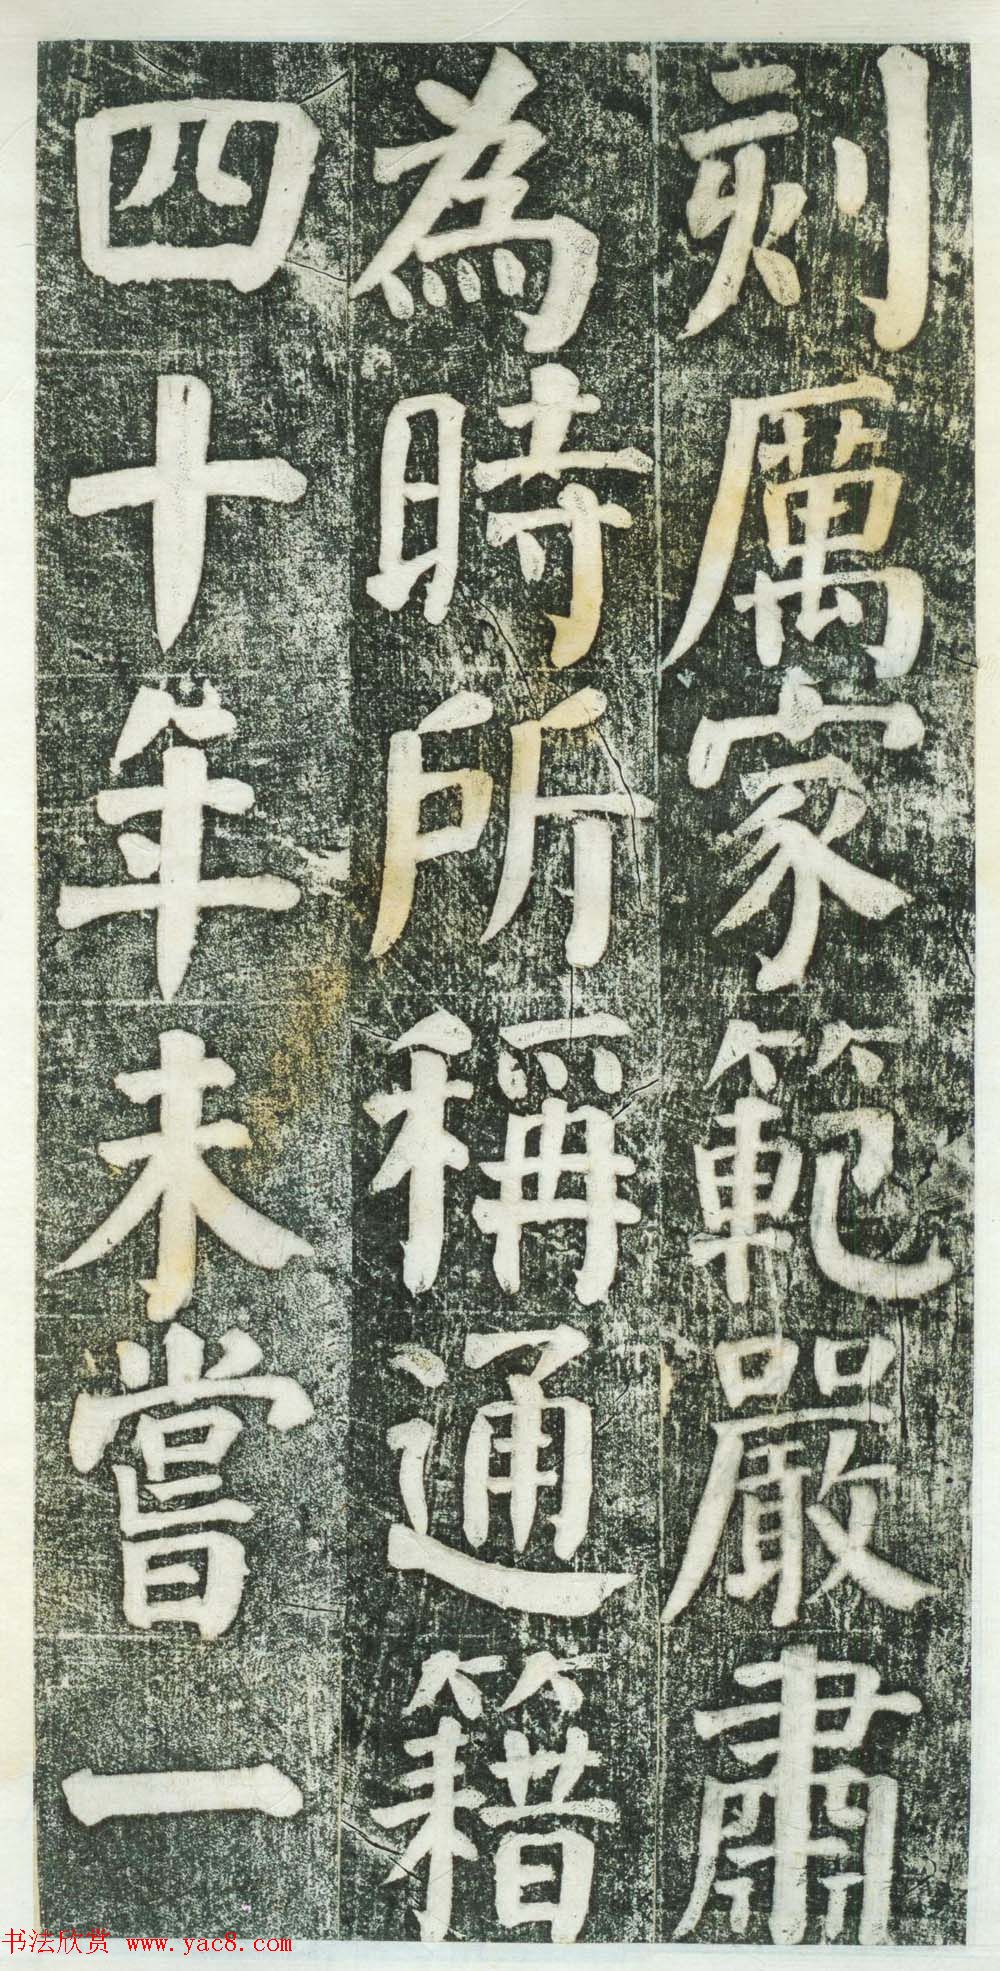 刻厲家範嚴肅
為時所稱通籍
四十年未嘗一
书法欣赏 www.yac8.com